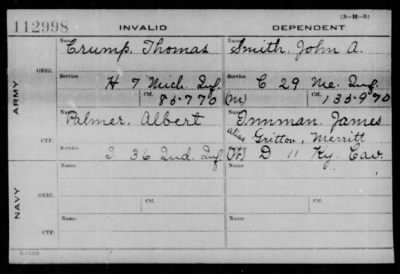 (3-H-3)
112998 INVALID DEPENDENT
Name Name
Crump, Thomas Smith, John A.
ORIG.
Service Service
H 7 Mich. Inf. C 29 Me. Inf.
Ctf. Ctf.
85-770 (M) 135-970
ARMY
Name Name
Palmer, Albert Inmman, James
alias Gritton, Merritt
CTF.
Service
I 36 Ind. Inf. D 11 Ky. Cav.
Name Name
NAVY
ORIG.
Ctf. Ctf.
Name Name
CTF.